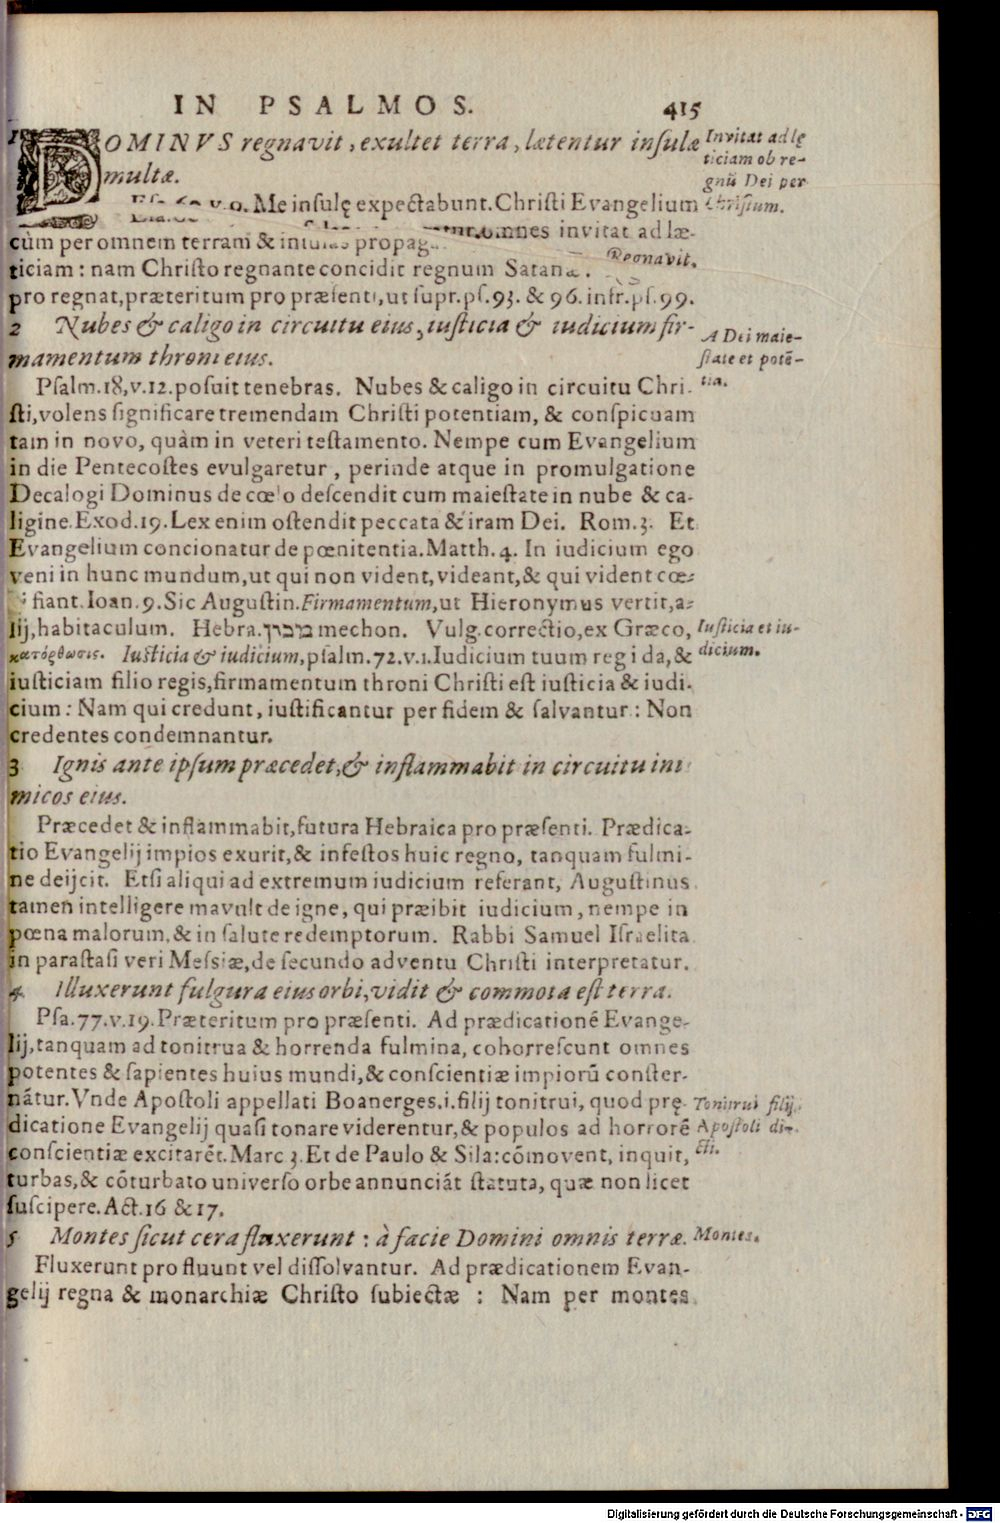 IN PSALMOS. 415
1 DOMINVS regnavit, exultet terra, lætentur insulæ
multæ.
v. 9. Me insulę expectabunt. Christi Evangelium
omnes invitat ad læ-
cùm per omnem terram & insulas
ticiam: nam Christo regnante concidit regnum Satanæ.
pro regnat, præteritum pro præsenti, ut supr. ps. 93. & 96. infr. ps. 99.
2 Nubes & caligo in circuitu eius, iusticia & iudicium fir-
mamentum throni eius.
Psalm. 18, v. 12. posuit tenebras. Nubes & caligo in circuitu Chri-
sti, volens significare tremendam Christi potentiam, & conspicuam
tam in novo, quàm in veteri testamento. Nempe cum Evangelium
in die Pentecostes evulgaretur, perinde atque in promulgatione
Decalogi Dominus de cœlo descendit cum maiestate in nube & ca-
ligine. Exod. 19. Lex enim ostendit peccata & iram Dei. Rom. 3. Et
Evangelium concionatur de pœnitentia. Matth. 4. In iudicium ego
veni in hunc mundum, ut qui non vident, videant, & qui vident cœ-
fiant. Ioan. 9. Sic Augustin. Firmamentum, ut Hieronymus vertit, a-
lij, habitaculum. Hebra. מכון mechon. Vulg. correctio, ex Græco,
κατόρθωσις. Iusticia & iudicium, psalm. 72. v. 1. Iudicium tuum regi da, &
iusticiam filio regis, firmamentum throni Christi est iusticia & iudi-
cium: Nam qui credunt, iustificantur per fidem & salvantur: Non
credentes condemnantur.
3 Ignis ante ipsum præcedet, & inflammabit in circuitu ini
micos eius.
Præcedet & inflammabit, futura Hebraica pro præsenti. Prædica-
tio Evangelij impios exurit, & infestos huic regno, tanquam fulmi-
ne deijcit. Etsi aliqui ad extremum iudicium referant, Augustinus
tamen intelligere mavult de igne, qui præibit iudicium, nempe in
pœna malorum, & in salute redemptorum. Rabbi Samuel Israelita
in parastasi veri Messiæ, de secundo adventu Christi interpretatur.
4. Illuxerunt fulgura eius orbi, vidit & commota est terra.
Psa. 77. v. 19. Præteritum pro præsenti. Ad prædicationē Evange-
lij, tanquam ad tonitrua & horrenda fulmina, cohorrescunt omnes
potentes & sapientes huius mundi, & conscientiæ impiorū conster-
nātur. Vnde Apostoli appellati Boanerges .i. filij tonitrui, quod prę-
dicatione Evangelij quasi tonare viderentur, & populos ad horrorē
conscientiæ excitarēt. Marc 3. Et de Paulo & Sila: cōmovent, inquit,
turbas, & cōturbato universo orbe annunciāt statuta, quæ non licet
suscipere. Act. 16 & 17.
5 Montes sicut cera fluxerunt: à facie Domini omnis terræ.
Fluxerunt pro fluunt vel dissolvantur. Ad prædicationem Evan-
gelij regna & monarchiæ Christo subiectæ : Nam per montes
Invitat ad lę
ticiam ob re-
gnū Dei per
Christum.
Regnavit.
A Dei maie-
state et potē-
tia.
Iusticia et iu-
dicium.
Tonitrui filij
Apostoli di-
cti.
Montes.
Digitalisierung gefördert durch die Deutsche Forschungsgemeinschaft - DFG